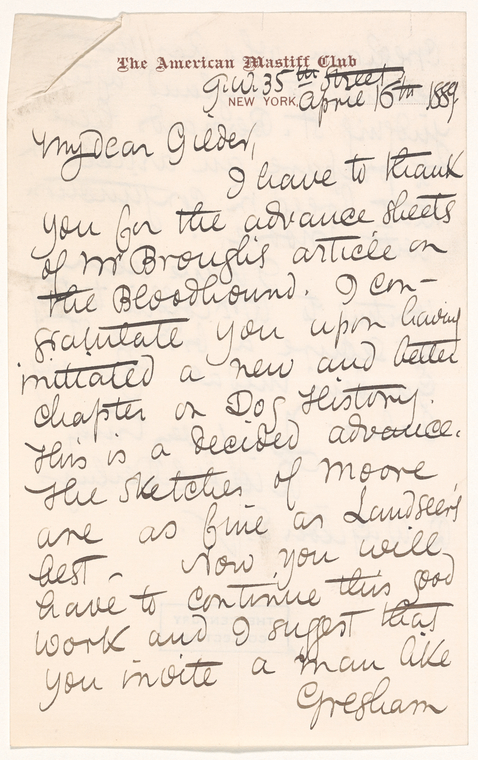 The American Mastiff Club
9 W. 35th Street
NEW YORK, April 16th 1889
My dear Gilder,
I have to thank
you for the advance sheets
of Mr Brough's article on
the Bloodhound. I con-
gratulate you upon having
initiated a new and better
chapter on Dog History.
This is a decided advance.
The sketches of Moore
are as fine as Landseer's
best - Now you will
have to continue this good
work and I sugest that
you invite a man like
Gresham